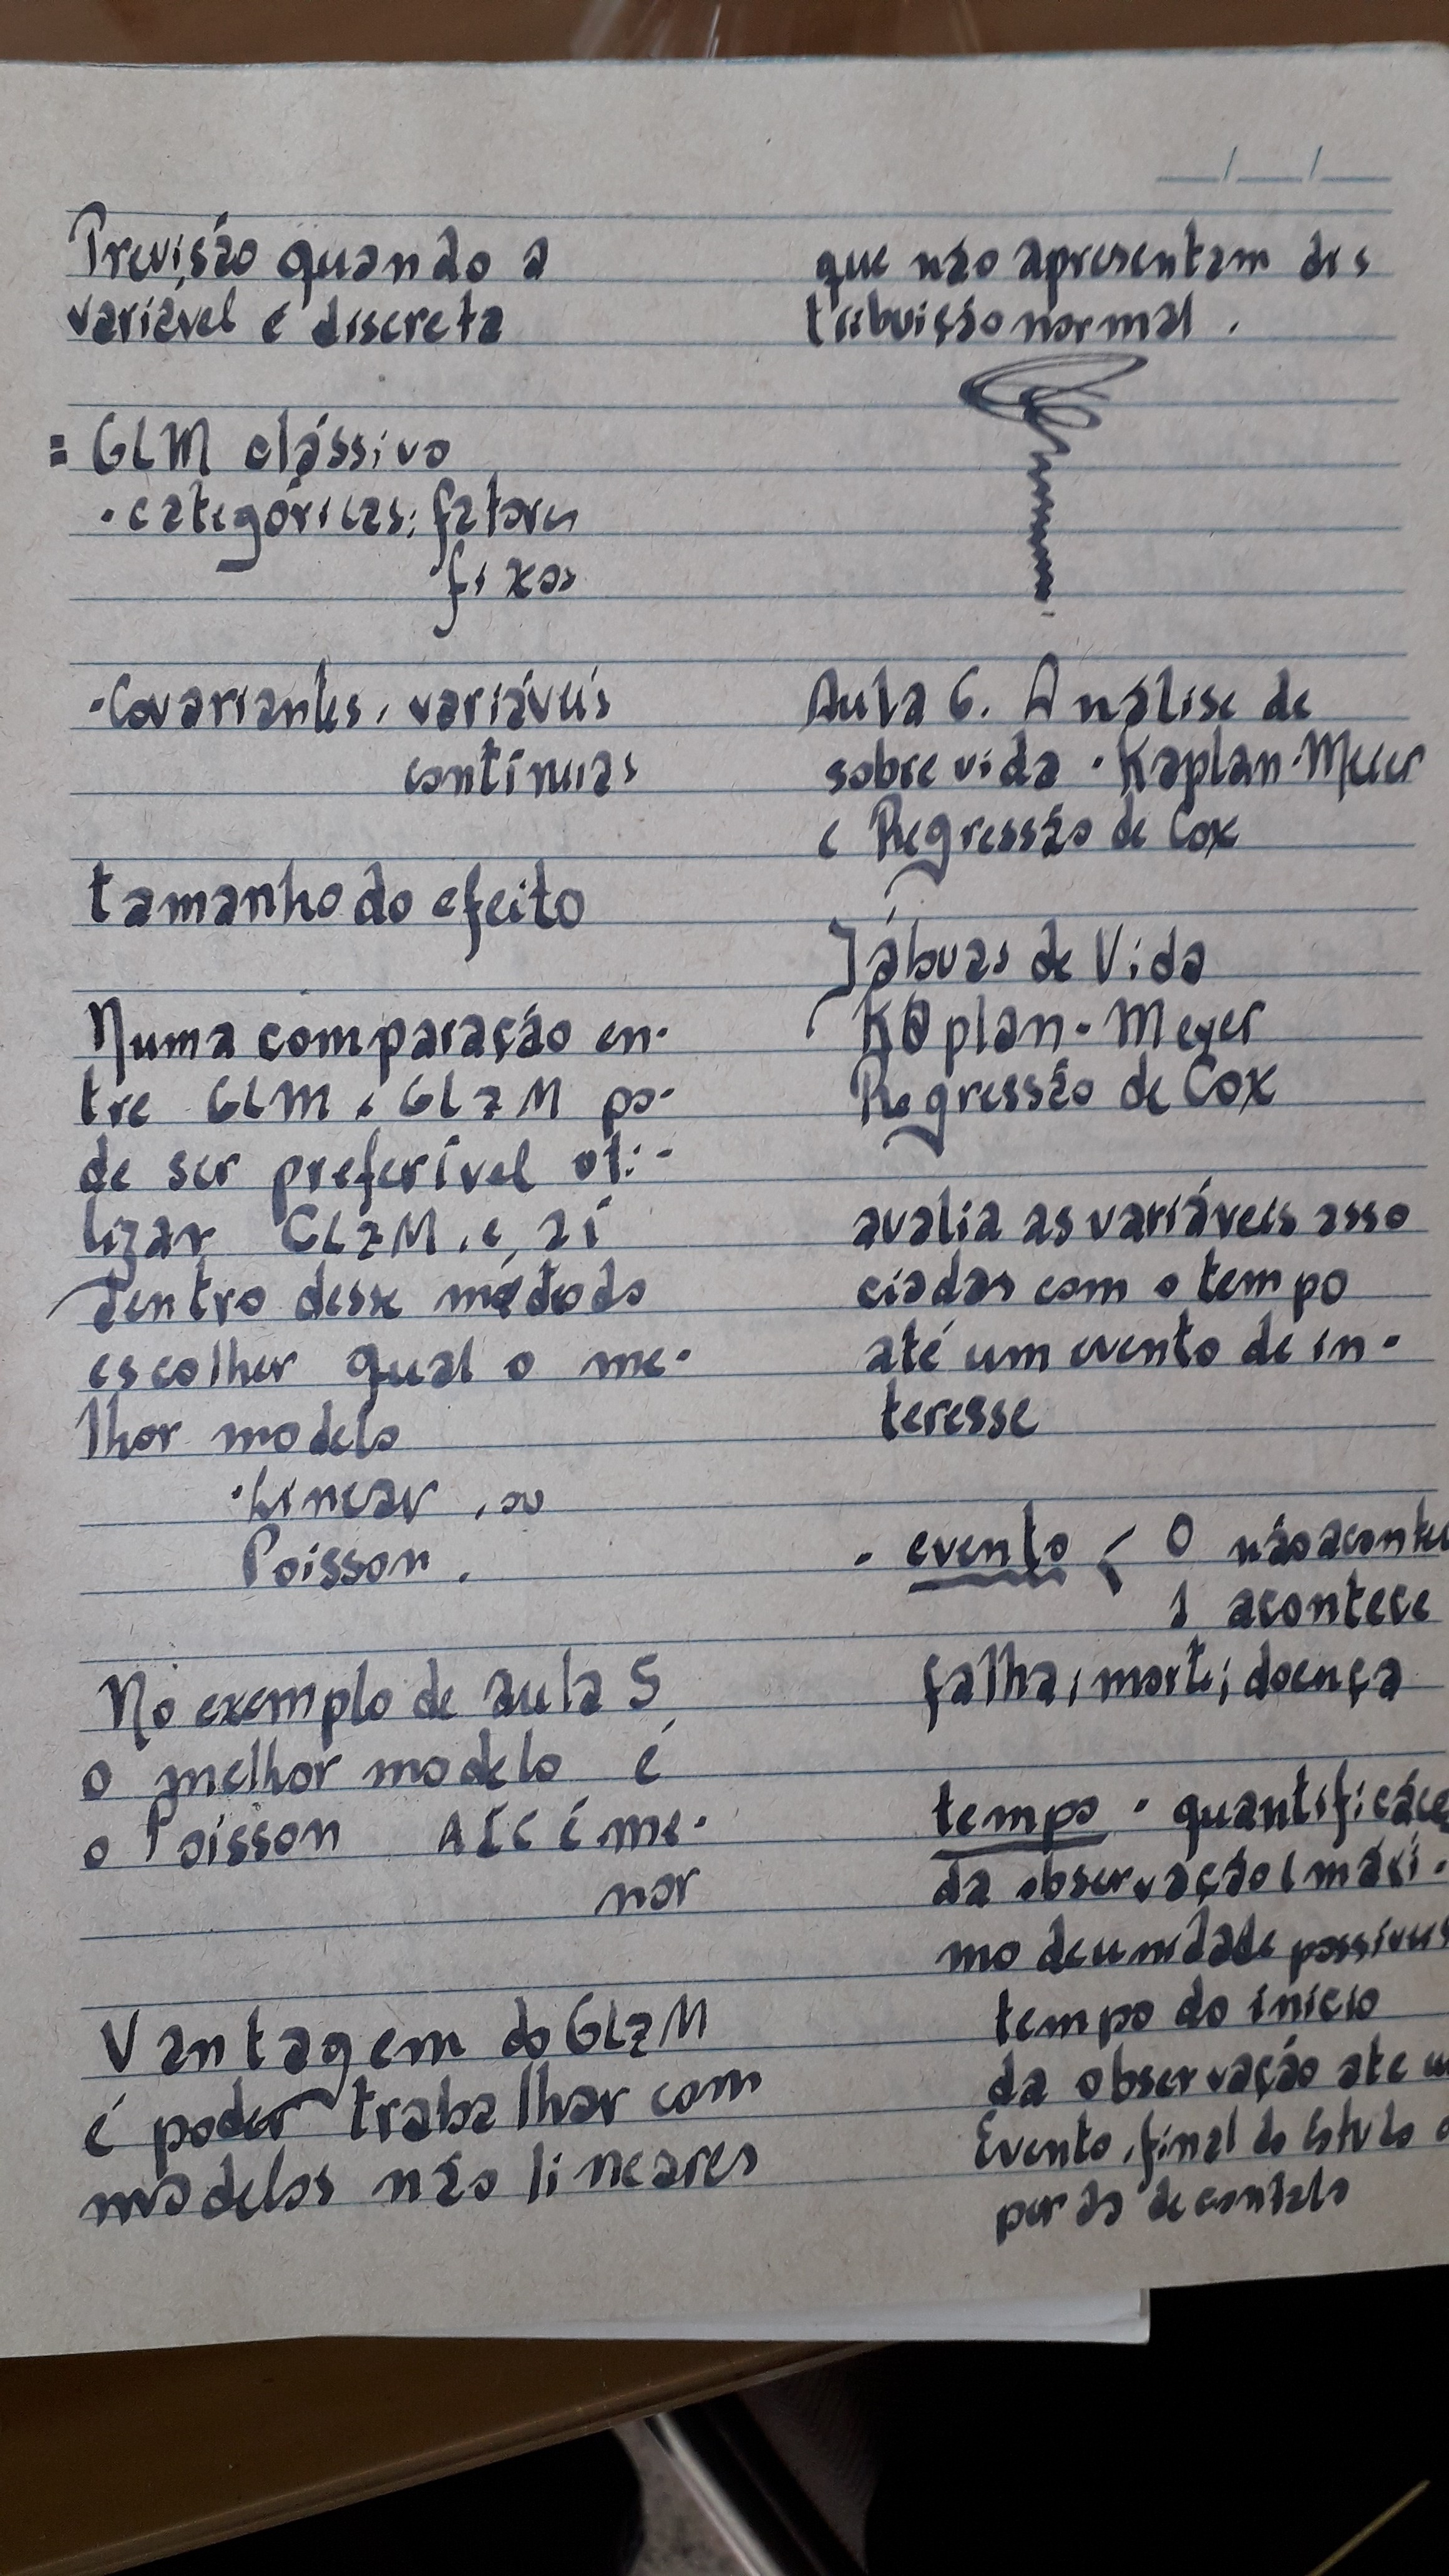 Previsão quando a
variável é discreta
= GLM clássivo
· categóricas: fatores
fixos
· Covariantes, variáveis
contínuas
tamanho do efeito
Numa comparação en-
tre GLM e GLzM po-
de ser preferível uti-
lizar GLzM, e, aí
dentro desse método
escolher qual o me-
lhor modelo
· Linear, ou
Poisson.
No exemplo de aula 5
o melhor modelo é
o Poisson AIC é me-
nor
Vantagem do GLzM
é poder trabalhar com
modelos não lineares
que não apresentam dis
tribuição normal.
Aula 6. Análise de
sobrevida · Kaplan-Meier
e Regressão de Cox
Tábuas de Vida
Kaplan-Meyer
Regressão de Cox
avalia as variáveis asso
ciadas com o tempo
até um evento de in-
teresse
· evento < 0 não aconte
1 aconteçe
falha; morte; doença
tempo · quantificáce
da observação (máxi-
mo de unidade possíveis
tempo do início
da observação ate u
Evento, final do Estudo o
perda de contato